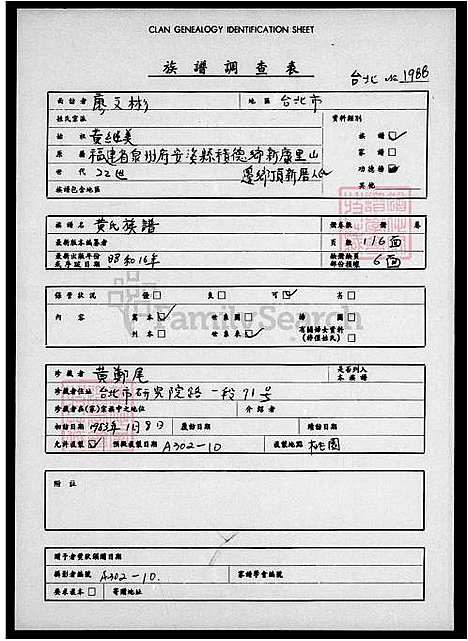 CLAN GENEALOGY IDENTIFICATION SHEET
族譜調查表
台北 No 1988
面訪者 廖文彬 地區 台北市
姓氏宗派 資料類別
始祖 黃繼美 族譜 ☑
原籍 福建省泉州府安溪縣積德鄉新康里山 家譜 □
世代 22世 邊鄉頂新厝人 功德榜 ☑
族譜包含地區 其他
族譜名 黃氏族譜 總卷數 卷
最新版本編纂者 頁數 116面
最新出版年份或序跋日期 昭和16年 檢驗缺頁部份損壞 6面
保管狀況 優 □ 良 □ 可 ☑ 劣 □
內容 寫本 ☑ 世系圖 □ 插圖 □
刊本 □ 世系表 ☑ 有關婦女資料(排徑姓氏) □
FamilySearch
珍藏者 黃鄭尾 是否列入本族譜
珍藏者住址 台北市研究院路一段71号
珍藏者在(家)宗族中之地位 介紹者
初訪日期 1983年11月8日 復訪日期 續訪日期
允許複製 ☑ 預擬複製日期 A302-10 複製地點 桃園
附註
贈予者獎狀頒贈日期
攝影者編號 A302-10. 家譜學會編號
要求複本 □ 寄贈地址